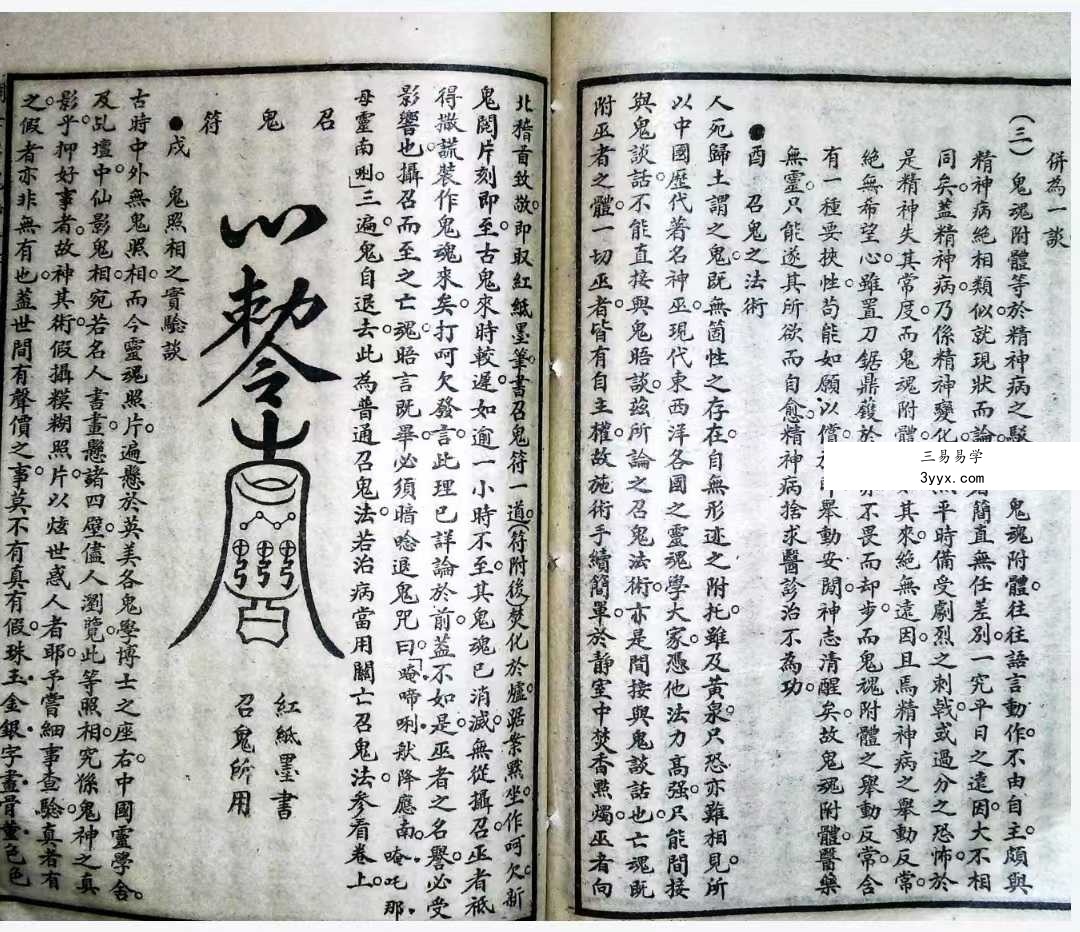 併為一談
(三)鬼魂附體等於精神病之 鬼魂附體。往往語言動作。不由自主。頗與
精神病絶相類似。就現狀而論。 簡直無任差別。一究平日之遠因。大不相
同矣。蓋精神病。乃係精神變化。 平時備受劇烈之刺戟。或過分之恐怖。於
是精神失其常度。而鬼魂附體。 其來。絶無遠因。且焉精神病之舉動反常。
絶無希望心。雖置刀鋸鼎鑊於 亦不畏而却步。而鬼魂附體之舉動反常。含
有一種要挾性。苟能如願以償。 即舉動安閒。神志清醒矣。故鬼魂附體。醫藥
無靈。只能遂其所欲而自愈。精神病捨求醫診治不為功。
●酉 召鬼之法術
人死歸土謂之鬼。既無箇性之存在。自無形迹之附托。雖及黃泉。只恐亦難相見。所
以中國歷代著名神巫。現代東西洋各國之靈魂學大家。憑他法力高强。只能間接
與鬼談話。不能直接與鬼晤談。茲所論之召鬼法術。亦是間接與鬼談話也。亡魂既
附巫者之體。一切巫者。皆有自主權。故施術手續簡單。於靜室中焚香點燭。巫者向
北稽首致敬。即取紅紙墨筆。書召鬼符一道。(符附後)焚化於爐。踞案默坐。作呵欠。新
鬼閱片刻即至。古鬼來時較遲。如逾一小時不至。其鬼魂已消滅。無從攝召。巫者祗
得撒謊裝作鬼魂來矣。打呵欠發言。此理已詳論於前。蓋不如是。巫者之名譽必受
影響也。攝召而至之亡魂。晤言既畢。必須暗唸退鬼咒曰。「唵啼唎。猷降應南。唵吒那。
母靈南唎。」三遍。鬼自退去。此為普通召鬼法。若治病當用關亡召鬼法。參看卷上。
召鬼符
敕令
紅紙墨書
召鬼所用
●戌 鬼照相之實驗談
古時中外無鬼照相。而今靈魂照片。遍懸於英美各鬼學博士之座右。中國靈學舍。
及乩壇中。仙影鬼相。宛若名人書畫。懸諸四壁。儘人瀏覽。此等照相。究係鬼神之真
影乎。抑好事者。故神其術。假攝糢糊照片。以炫世惑人者耶。予嘗細事查驗。真者有
之。假者亦非無有也。蓋世間有聲價之事。莫不有真有假。珠玉金銀。字畫骨董。色色
三易易学
3yyx.com